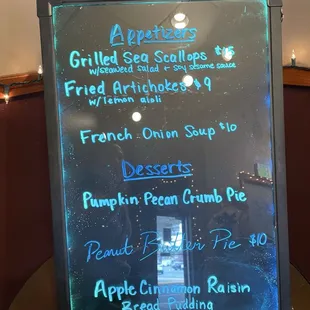 Appetizers
Grilled Sea Scallops $15
w/seaweed salad + soy sesame sauce
Fried Artichokes $9
w/lemon aioli
French Onion Soup $10
Desserts
Pumpkin Pecan Crumb Pie
Peanut Butter Pie $10
Apple Cinnamon Raisin
Bread Pudding